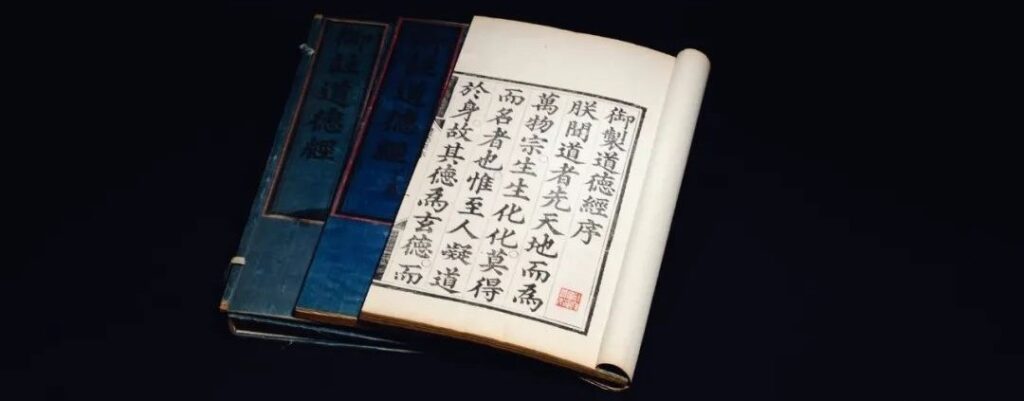 御製道德經序
朕聞道者先天地而為
萬物宗生生化化莫得
而名者也惟至人凝道
於身故其德為玄德而
御註道德經
御註道德經